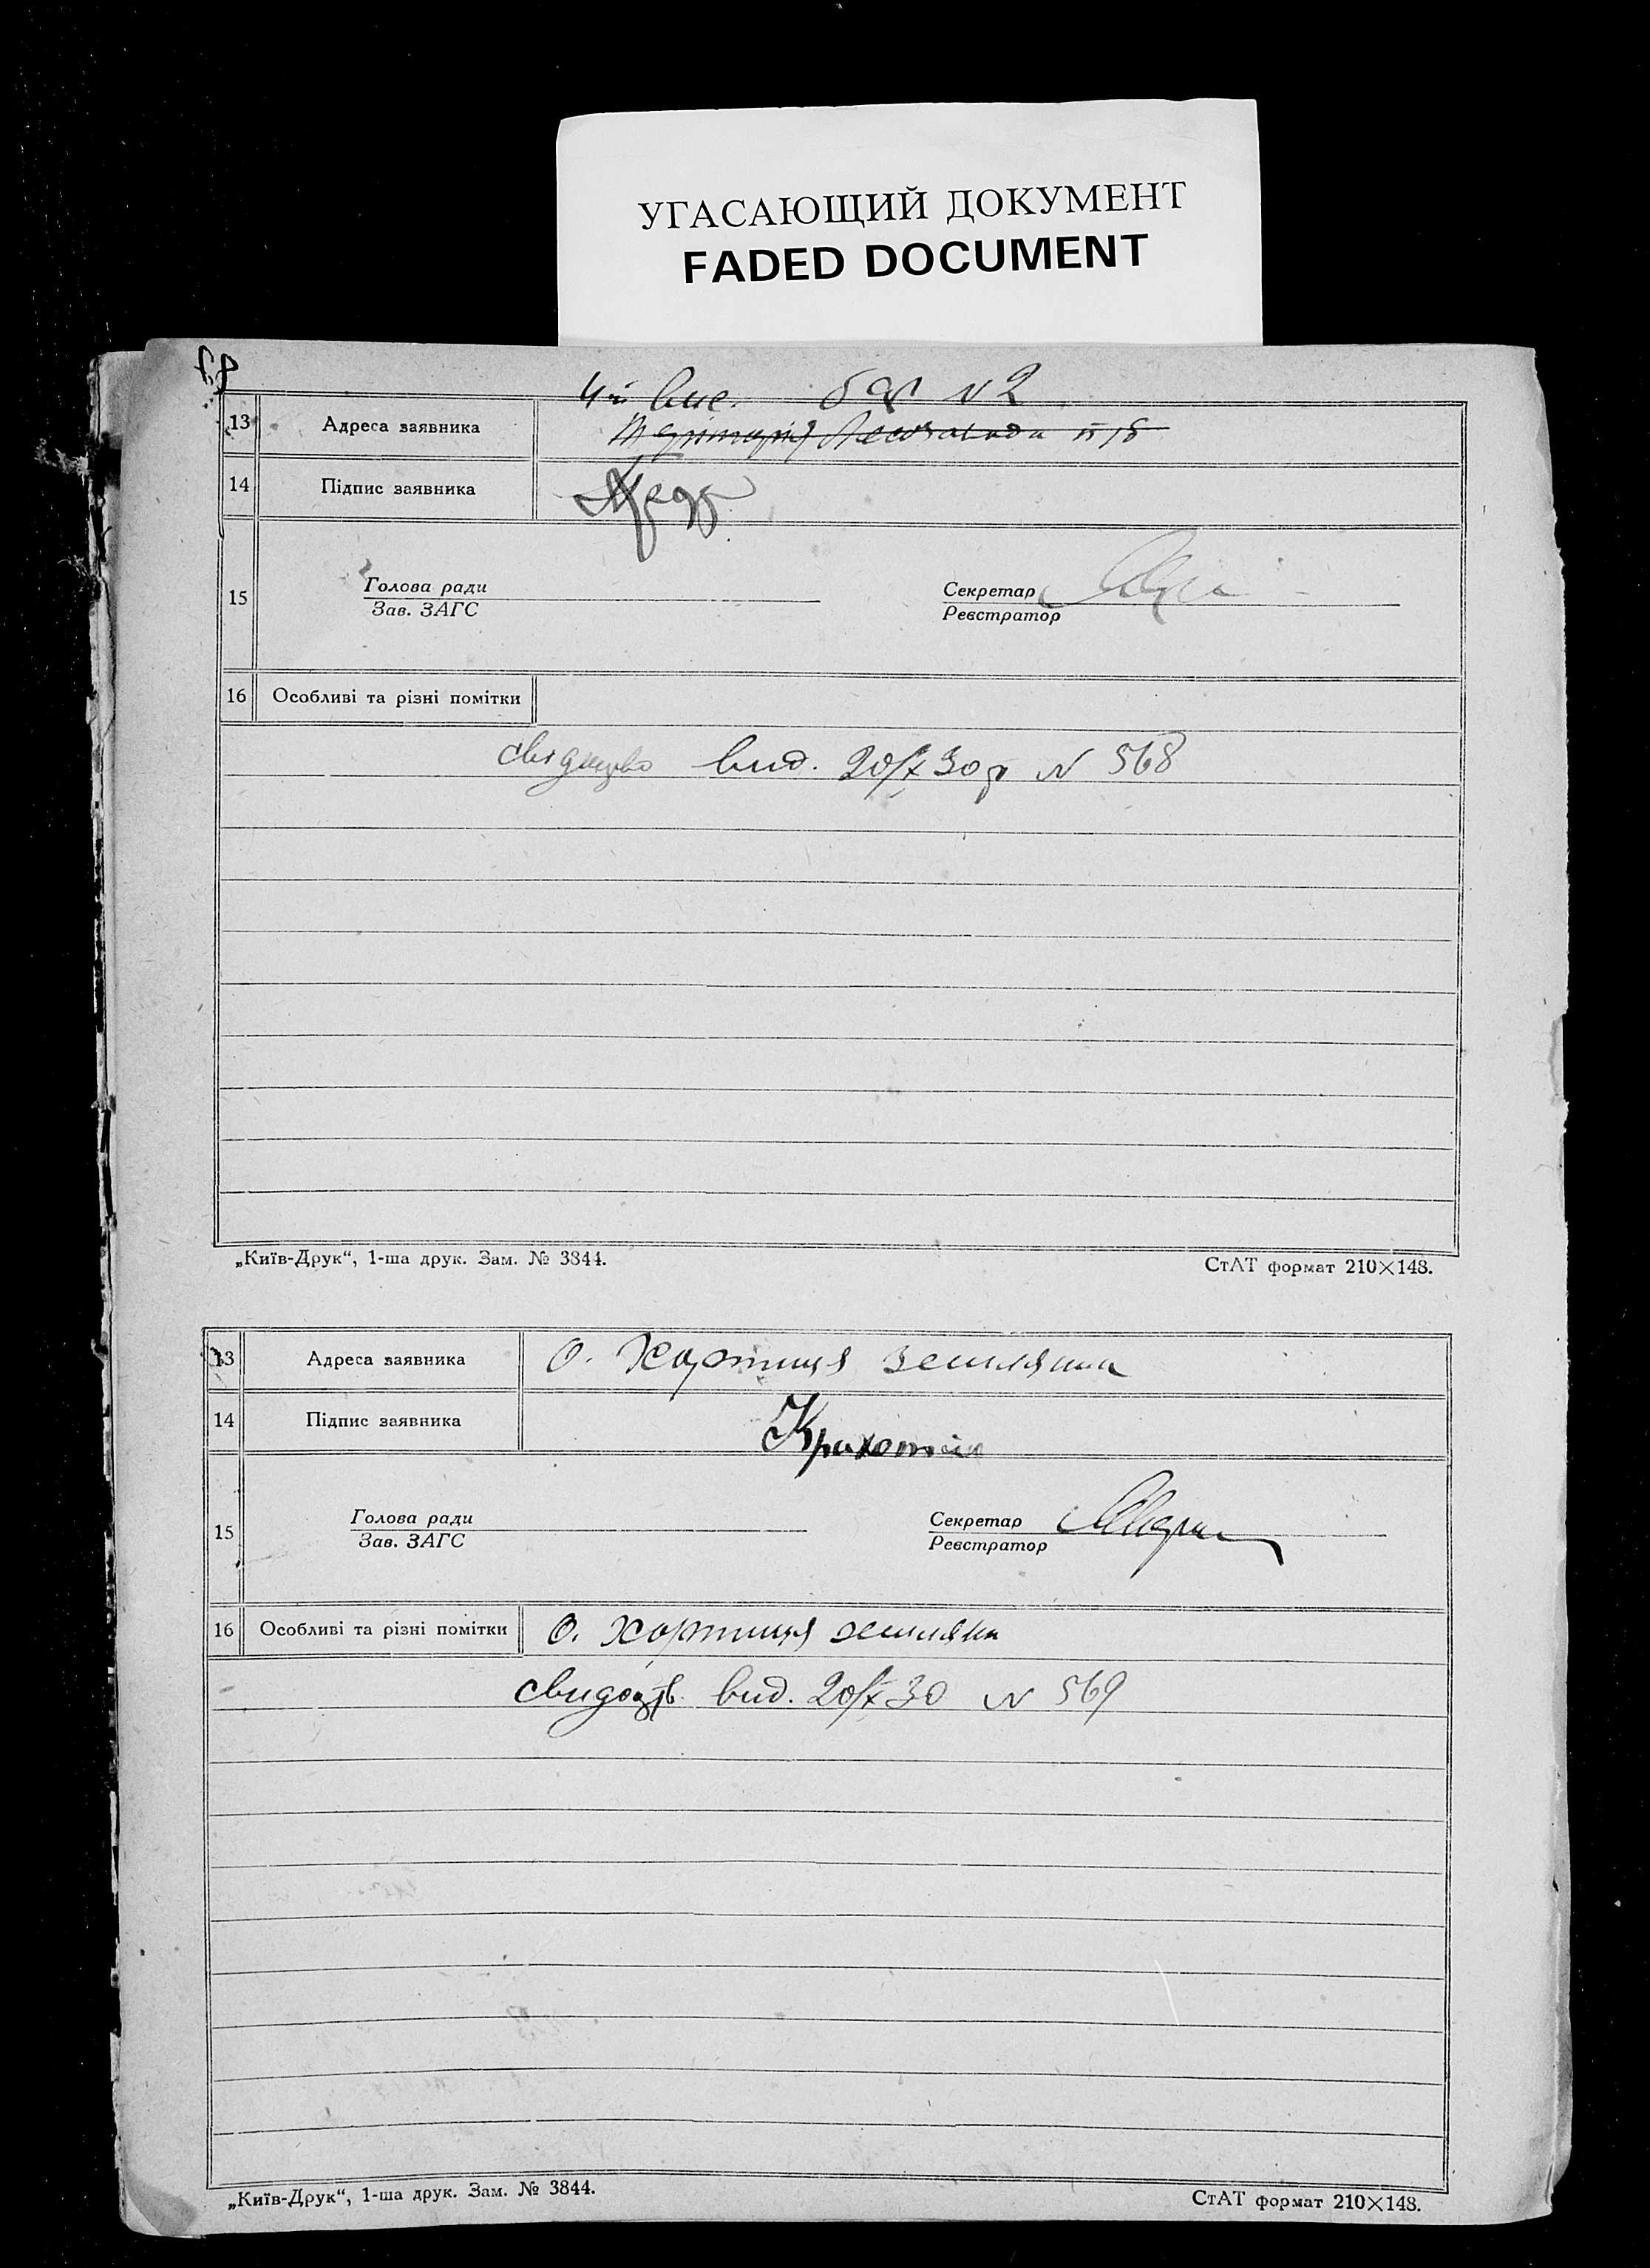 УГАСАЮЩИЙ ДОКУМЕНТ
FADED DOCUMENT
бар N 2
13 Адреса заявника
14 Підпис заявника
15 Голова ради
Зав. ЗАГС
Секретар
Реєстратор
16 Особливі та різні помітки
вид. 20/X 30 р N 568
„Київ-Друк“, 1-ша друк. Зам. № 3844.
СтАТ формат 210×148.
13 Адреса заявника О. Хортиця землянка
14 Підпис заявника
15 Голова ради
Зав. ЗАГС
Секретар
Реєстратор
16 Особливі та різні помітки О. Хортиця землянк
вид. 20/X 30 N 569
„Київ-Друк“, 1-ша друк. Зам. № 3844.
СтАТ формат 210×148.